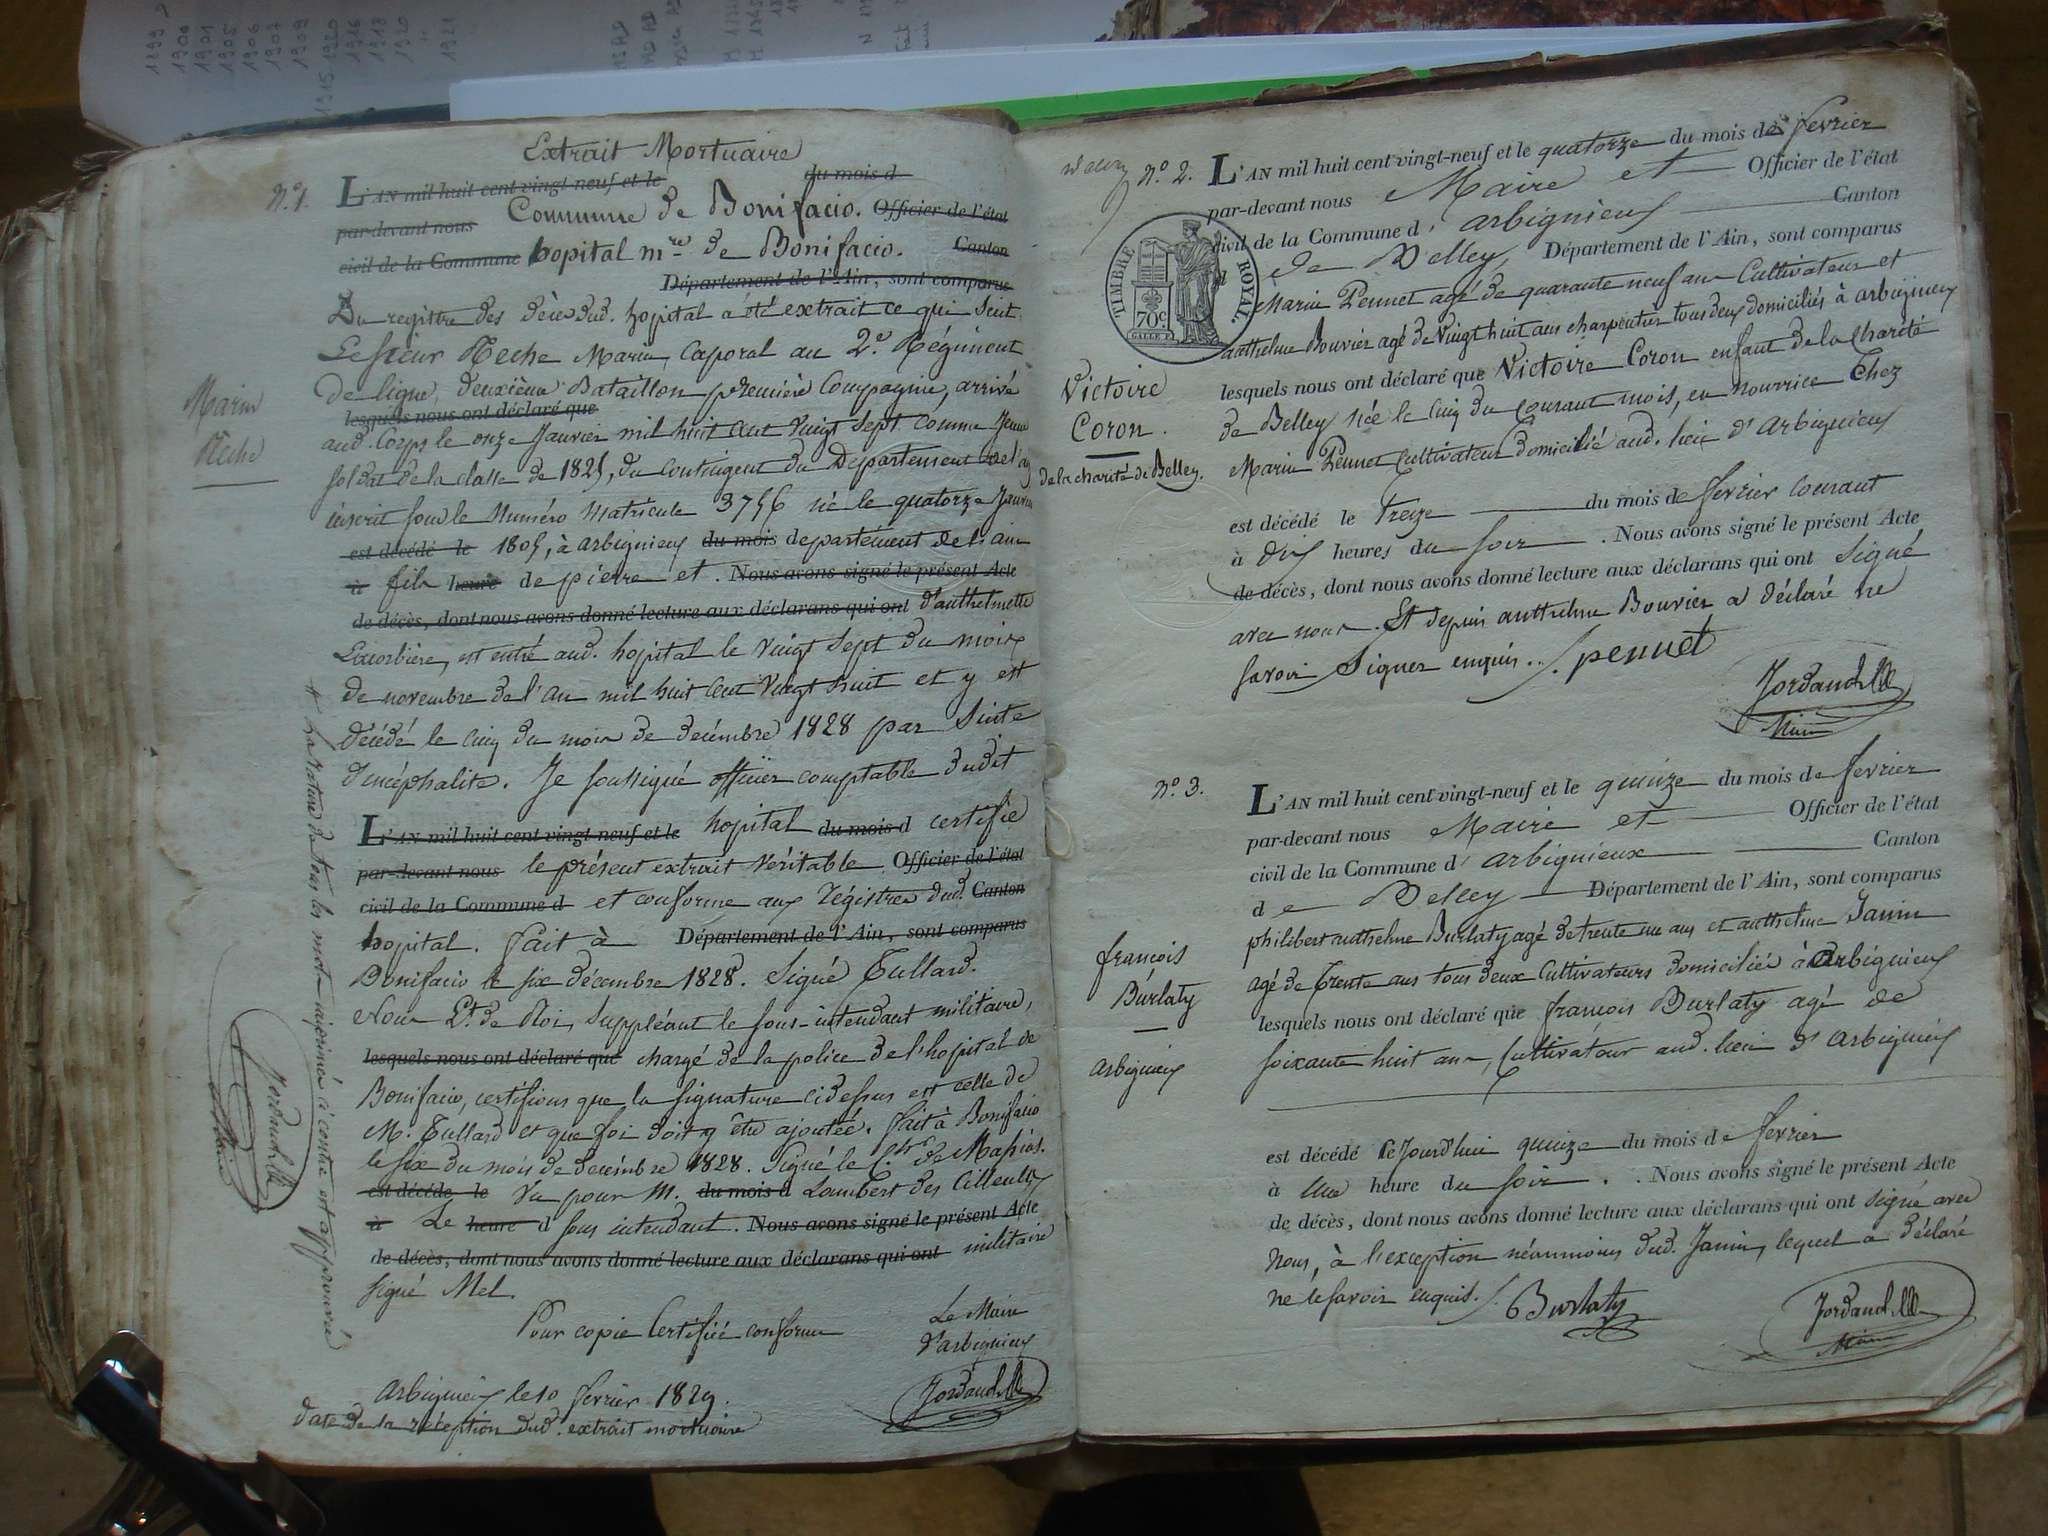 1899
1900
1901
1905
1906
1907
1909
1915 1920
1916
1918
1920
1921
Extrait Mortuaire
N.° 1.
L'AN mil huit cent vingt-neuf et le du mois d
par-devant nous Commune de Bonifacio. Officier de l'état
civil de la Commune hopital m.re de Bonifacio. Canton
Département de l'Ain, sont comparus
Du registre des décès dud. hopital a été extrait ce qui suit
Le sieur Réche Marin, Caporal au 2.e Régiment
de ligne, deuxième Bataillon première Compagnie, arrivé
lesquels nous ont déclaré que
aud. Corps le onze Janvier mil huit cent vingt sept comme Jeune
soldat de la classe de 1825, du contingent du Departement de l'ain
inscrit sous le Numéro matricule 3756 né le quatorze Janvier
est décédé le 1805, à arbignieux du mois departement de l'ain
à fils heure de pierre et . Nous avons signé le présent Acte
de décès, dont nous avons donné lecture aux déclarans qui ont d'anthelmette
est entré aud. hopital le vingt sept du mois
de novembre de l'an mil huit cent vingt huit et y est
décédé le cinq du mois de decémbre 1828 par suite
d'encéphalite. Je soussigné officier comptable dudit
L'AN mil huit cent vingt-neuf et le hopital du mois d certifie
par-devant nous le présent extrait véritable Officier de l'état
civil de la Commune d et conforme aux régistres dud. Canton
hopital. fait à Département de l'Ain, sont comparus
Bonifacio le six décembre 1828. Signé Tullard.
Nous Lt. de Roi, suppléant le sous-intendant militaire,
lesquels nous ont déclaré que chargé de la police de l'hopital de
Bonifacio, certifions que la signature cidessus est celle de
M. Tullard et que foi doit y être ajoutée. fait à Bonifacio
le six du mois de decémbre 1828. Signé le
est décédé le Vu pour M. du mois d Lambert des Cilleuls
à Le heure d sous intendant. Nous avons signé le présent Acte
de décès, dont nous avons donné lecture aux déclarans qui ont militaire
signé Mel.
Pour copie Certifiée conforme Le Maire
d'arbignieux
Arbignieux le 10 fevrier 1829.
date de la réception dud. extrait mortuaire
Marin
Réche
la rature de tous les mots imprimés ci contre est approuvée
Maire
N.° 2.
L'AN mil huit cent vingt-neuf et le quatorze du mois de fevrier
par-devant nous Maire et Officier de l'état
civil de la Commune d'arbignieux Canton
de Belley, Département de l'Ain, sont comparus
TIMBRE ROYAL.
70c
Marin Pennet agé de quarante neuf ans Cultivateur et
anthelme Bouvier agé de vingt huit ans charpentier tous deux domiciliés à arbignieux
lesquels nous ont déclaré que Victoire Coron enfant de la charité
de Belley née le cinq du courant mois, en nourrice chez
Marin Pennet cultivateur domicilié aud. lieu d'arbignieux
Victoire
Coron.
de la charité de Belley.
est décédé le Treize du mois de fevrier courant
à dix heures du soir . Nous avons signé le présent Acte
de décès, dont nous avons donné lecture aux déclarans qui ont signé
avec nous. Et depuis anthelme Bouvier a déclaré ne
savoir signer enquis. pennet
Maire
N.° 3.
L'AN mil huit cent vingt-neuf et le quinze du mois de fevrier
par-devant nous Maire et Officier de l'état
civil de la Commune d'arbignieux Canton
de Belley Département de l'Ain, sont comparus
philibert anthelme Burlaty agé de trente un ans et anthelme Janin
agé de trente ans tous deux cultivateurs domiciliés à Arbignieux
lesquels nous ont déclaré que françois Burlaty agé de
soixante huit ans, Cultivateur aud. lieu d'arbignieux
françois
Burlaty
arbignieux
est décédé Cejourd'hui quinze du mois de fevrier
à une heure du soir . Nous avons signé le présent Acte
de décès, dont nous avons donné lecture aux déclarans qui ont signé avec
Nous, à l'exception néanmoins dud. Janin, lequel a déclaré
ne le savoir enquis. Burlaty
Maire